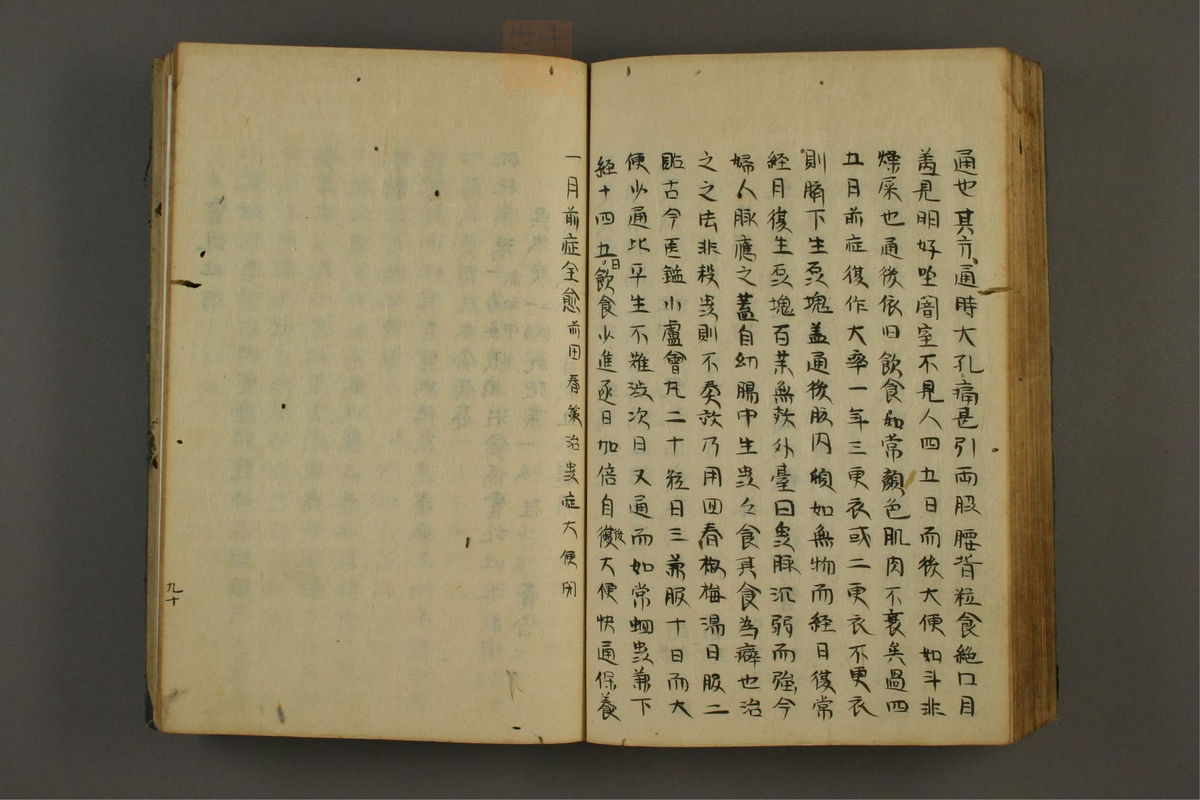 通也其方通時大孔痛甚引両股腰背粒食絶口目
羞見明好坐闇室不見人四五日而後大便如斗非
燥屎也通後依旧飲食如常顔色肌肉不衰矣過四
五月前症復作大率一年三更衣或二更衣不更衣
則臍下生一塊蓋通後腹内如無物而経日復常
経月復生塊百薬無効外臺曰虫脉沉弱而強今
婦人脉應之蓋自幼腸中生虫之食其食為癖也治
之之法非殺虫則不奏効乃用回春椒梅湯日服二
貼古今医鑑小蘆薈丸二十粒日三兼服十日而大
便少通比平生不難渋次日又通而如常蛔虫兼下
経十四五日飲食少進逐日加倍自後大便快通保養
一月前症全愈前田春策治虫症大便閉
九十